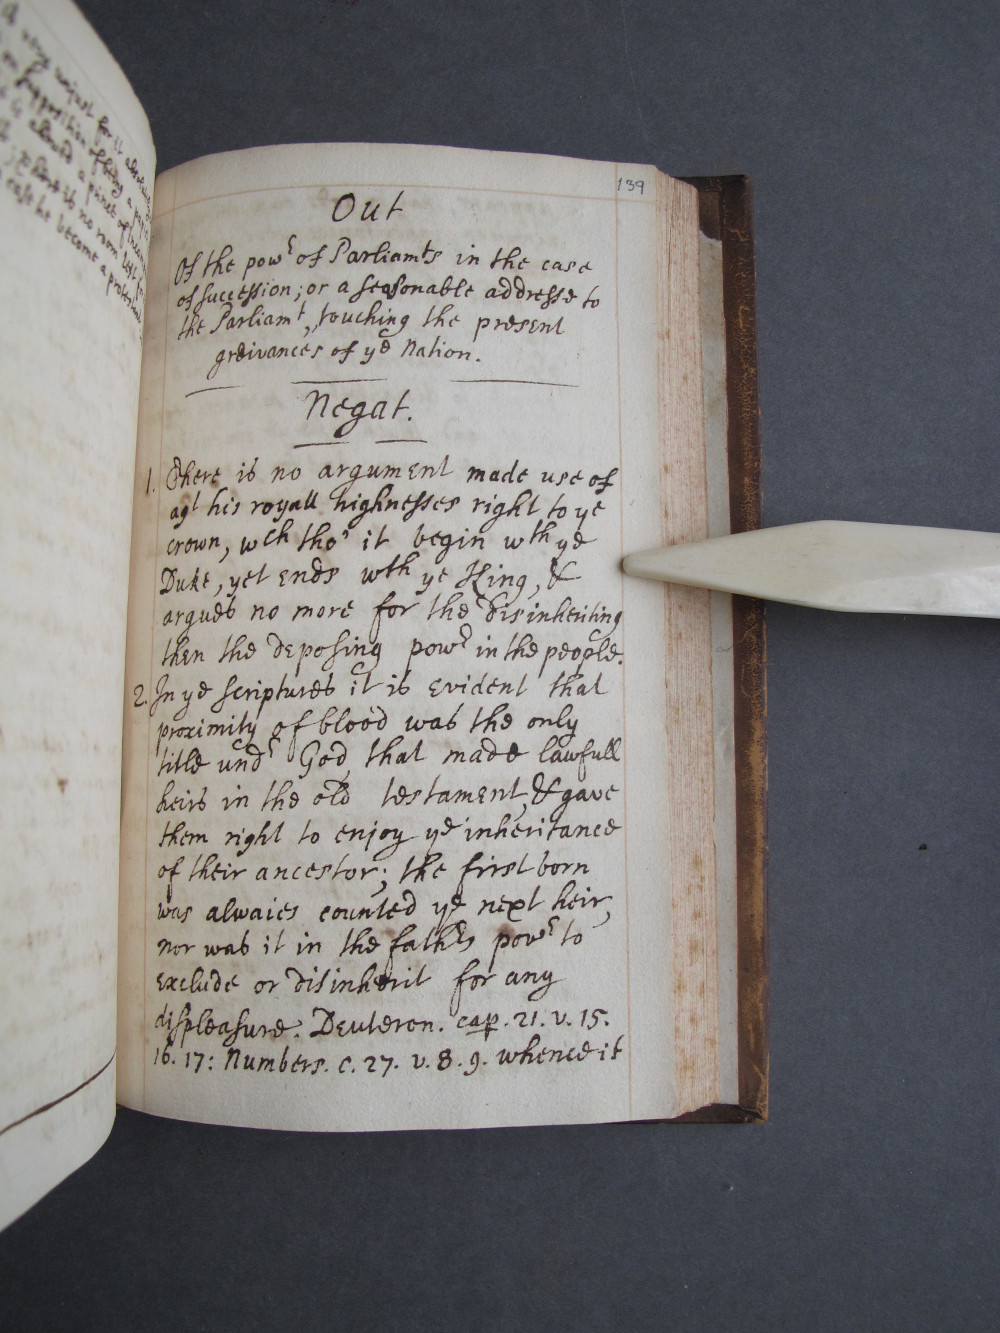 very unjust for it absolutely
on supposition of being a papist
is allowed a point of
there is no room left for
case he become a protestant
139
Out
Of the powr of Parliamts in the case
of succession; or a seasonable addresse to
the Parliamt, touching the present
greivances of ye Nation.
Negat.
1. There is no argument made use of
agt his royall highnesses right to ye
crown, wch tho' it begin wth ye
Duke, yet ends wth ye King, &
argues no more for the disinheriting
then the deposing powr in the people.
2. In ye scriptures it is evident that
proximity of blood was the only
title undr God that made lawfull
heirs in the old testament, & gave
them right to enjoy ye inheritance
of their ancestor; the first born
was alwaies counted ye next heir,
nor was it in the fathrs powr to
exclude or disinherit for any
displeasure. Deuteron. cap. 21. v. 15.
16. 17: Numbers. c. 27. v. 8. 9. whence it